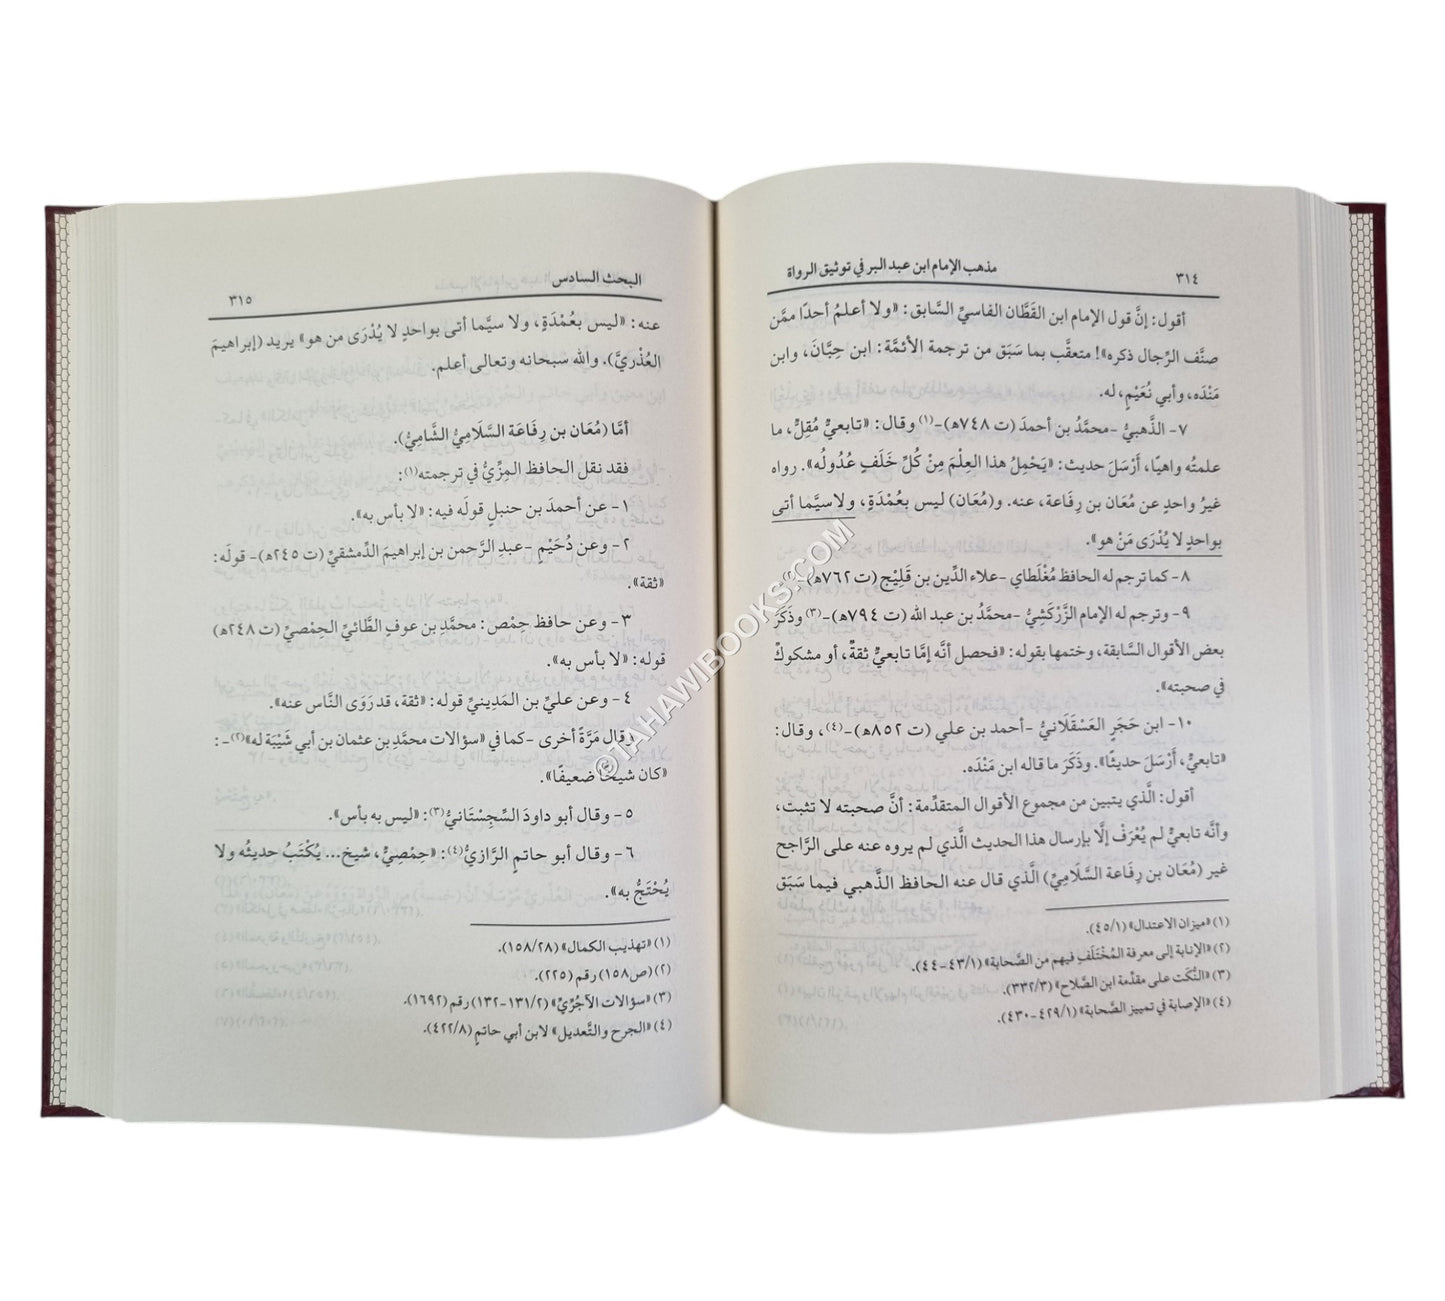 ٣١٤
مذهب الإمام ابن عبد البر في توثيق الرواة
أقول: إنَّ قول الإمام ابن القَطَّان الفاسيِّ السَّابق: «ولا أعلمُ أحدًا ممَّن
صنَّف الرِّجال ذكره»! متعقَّب بما سَبَق من ترجمة الأئمَّة: ابن حِبَّانَ، وابن
مَنْدَه، وأبي نُعَيْمٍ، له.
٧- الذَّهبيُّ -محمَّدُ بن أحمدَ (ت ٧٤٨ﻫ)-(١) وقال: «تابعيٌّ مُقِلٌّ، ما
علمتُه واهيًا، أَرْسَلَ حديث: «يَحْمِلُ هذا العِلْمَ مِنْ كُلِّ خَلَفٍ عُدُولُه». رواه
غيرُ واحدٍ عن مُعَان بن رِفَاعة، عنه. و(مُعَان) ليس بعُمْدَةٍ، ولاسيَّما أتى
بواحدٍ لا يُدْرَى مَنْ هو».
٨- كما ترجم له الحافظ مُغْلَطاي -علاء الدِّين بن قَلِيْج (ت ٧٦٢ﻫ)-(٢).
٩- وترجم له الإمام الزَّرْكَشِيُّ -محمَّدُ بن عبد الله (ت ٧٩٤ﻫ)-(٣) وذَكَرَ
بعض الأقوال السَّابقة، وختمها بقوله: «فحصل أنَّه إمَّا تابعيٌّ ثقةٌ، أو مشكوكٌ
في صحبته».
١٠- ابن حَجَرٍ العَسْقَلَانيُّ -أحمد بن علي (ت ٨٥٢ﻫ)-(٤)، وقال:
«تابعيٌّ، أَرْسَلَ حديثًا». وذَكَرَ ما قاله ابن مَنْدَه.
أقول: الَّذي يتبين من مجموع الأقوال المتقدِّمة: أنَّ صحبته لا تثبت،
وأنَّه تابعيٌّ لم يُعْرَفْ إلَّا بإرسال هذا الحديث الَّذي لم يروه عنه على الرَّاجح
غير (مُعَان بن رِفَاعة السَّلَاميِّ) الَّذي قال عنه الحافظ الذَّهبي فيما سَبَق
(١) «ميزان الاعتدال» (٤٥/١).
(٢) «الإنابة إلى معرفة المُخْتَلَفِ فيهم من الصَّحابة» (٤٣/١-٤٤).
(٣) «النُّكَت على مقدِّمة ابن الصَّلاح» (٣٣٢/٣).
(٤) «الإصابة في تمييز الصَّحابة» (٤٢٩/١-٤٣٠).
البحث السادس
٣١٥
عنه: «ليس بعُمْدَةٍ، ولا سيَّما أتى بواحدٍ لا يُدْرَى من هو» يريد (إبراهيمَ
العُذْريَّ). والله سبحانه وتعالى أعلم.
أمَّا (مُعَان بن رِفَاعَة السَّلَاميُّ الشَّاميُّ).
فقد نقل الحافظ المِزِّيُّ في ترجمته(١):
١- عن أحمدَ بن حنبلٍ قولَه فيه: «لا بأس به».
٢- وعن دُحَيْمٍ -عبدِ الرَّحمن بن إبراهيمَ الدِّمشقيِّ (ت ٢٤٥ﻫ)- قولَه:
«ثقة».
٣- وعن حافظ حِمْص: محمَّدِ بن عوفٍ الطَّائيِّ الحِمْصيِّ (ت ٢٤٨ﻫ)
قوله: «لا بأس به».
٤- وعن عليِّ بن المَدِينيِّ قوله: «ثقة، قد رَوَى النَّاس عنه».
وقال مَرَّةً أخرى -كما في «سؤالات محمَّدِ بن عثمان بن أبي شَيْبَة له»(٢)-:
«كان شيخًا ضعيفًا».
٥- وقال أبو داودَ السِّجِسْتَانيُّ(٣): «ليس به بأس».
٦- وقال أبو حاتمٍ الرَّازيُّ(٤): «حِمْصِيٌّ، شيخ... يُكْتَبُ حديثُه ولا
يُحْتَجُّ به».
(١) «تهذيب الكمال» (١٥٨/٢٨).
(٢) (ص١٥٨) رقم (٢٢٥).
(٣) «سؤالات الآجُرِّيِّ» (١٣١/٢-١٣٢) رقم (١٦٩٢).
(٤) «الجرح والتَّعديل» لابن أبي حاتمٍ (٤٢٢/٨).
©TAHAWIBOOKS.COM